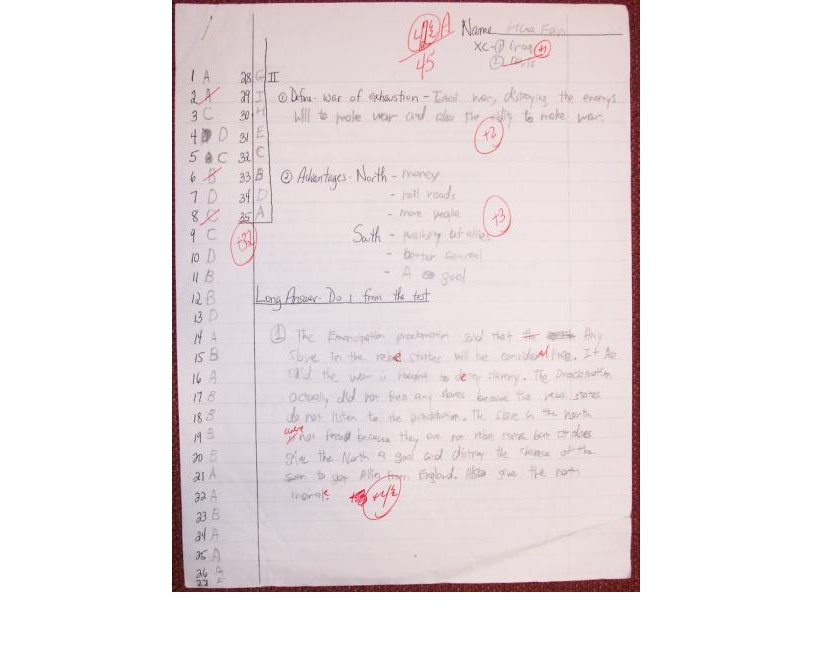 42½ A
45
Name Hua Fan
XC-① Iraq +1
② Davis
1 A
2 A
3 C
4 D
5 C
6 B
7 D
8 C
9 C
10 D
11 B
12 B
13 D
14 A
15 B
16 A
17 B
18 B
19 B
20 B
21 A
22 A
23 B
24 A
25 A
26 A
27 F
28 G
29 I
30 H
31 E
32 C
33 B
34 D
35 A
+32
II
① Define - war of exhaustion - Total war, distroying the enemys
will to make war and also the ability to make war.
+2
② Advantages - North - money
- rail roads
- more people
+3
South -
- better General
- A goal
Long Answer - Do 1 from the test
① The Emancipation proclamation said that Any
Slave in the rebel states will be considered free. It
said the war is fought to slavery. The Proclamation
actually did not free any slaves because the rebel states
do not listen to the proclamation. The slave in the north
were not freed because they are not rebel states but it does
give the North a goal and distroy the chance of the
to get Allies from England. Also give the north
morale. +4½